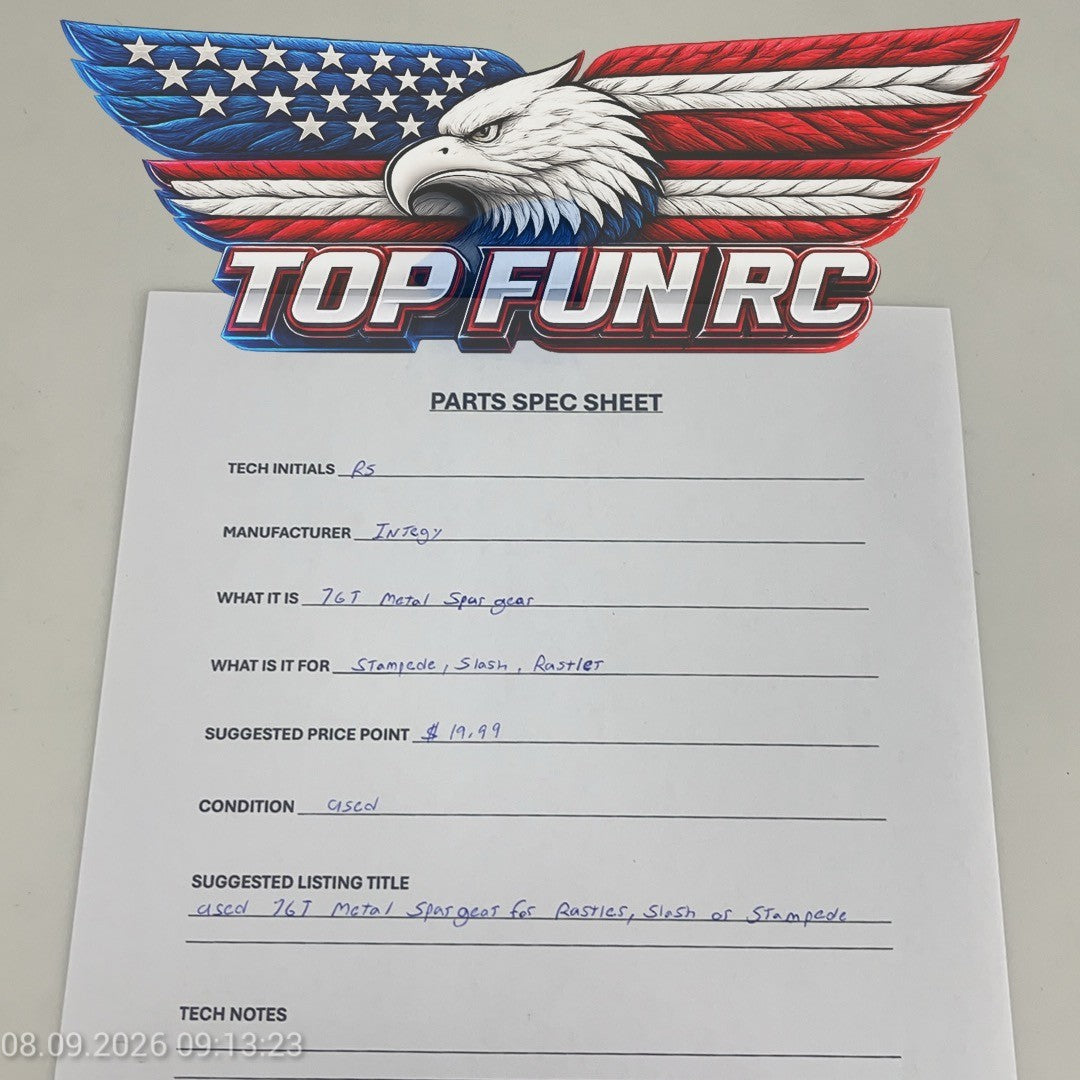 TOP FUN RC
PARTS SPEC SHEET
TECH INITIALS RS
MANUFACTURER Integy
WHAT IT IS 76T Metal Spur gear
WHAT IS IT FOR Stampede, Slash, Rustler
SUGGESTED PRICE POINT $ 19.99
CONDITION used
SUGGESTED LISTING TITLE
used 76T Metal Spur gear for Rustler, Slash or Stampede
TECH NOTES
08.09.2026 09:13:23